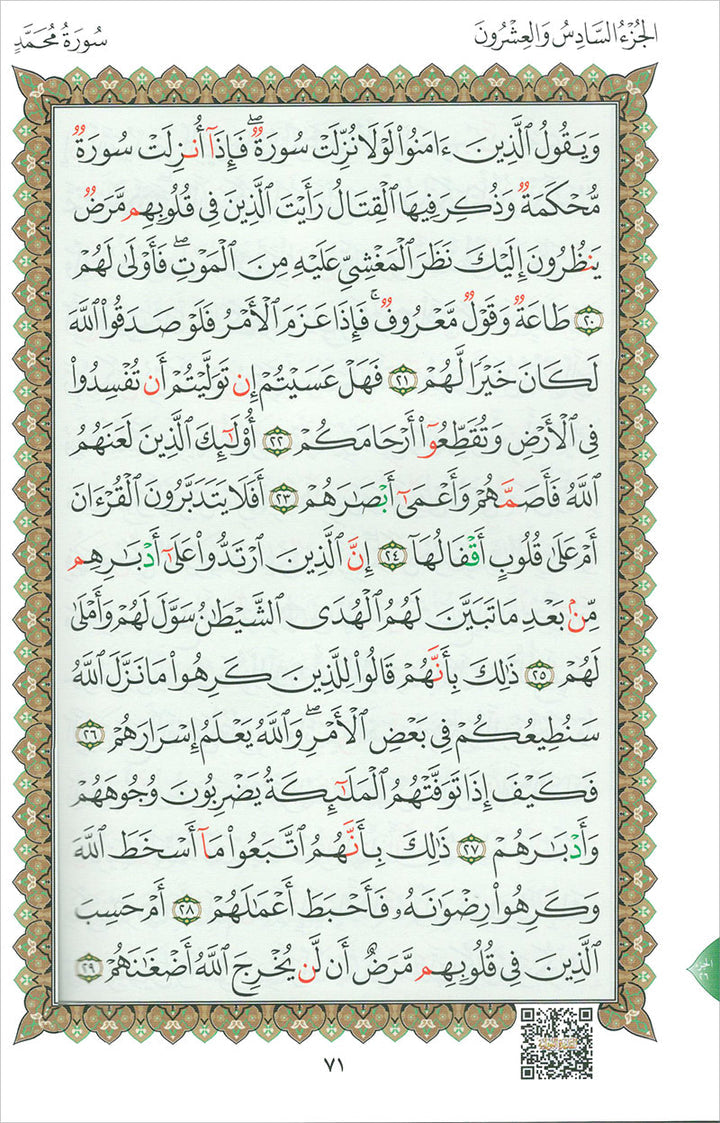 الجُزْءُ السَّادِسُ وَالعِشْرُونَ
سُورَةُ مُحَمَّدٍ
وَيَقُولُ ٱلَّذِينَ ءَامَنُوا۟ لَوْلَا نُزِّلَتْ سُورَةٌ ۖ فَإِذَآ أُنزِلَتْ سُورَةٌ
مُّحْكَمَةٌ وَذُكِرَ فِيهَا ٱلْقِتَالُ رَأَيْتَ ٱلَّذِينَ فِى قُلُوبِهِم مَّرَضٌ
يَنظُرُونَ إِلَيْكَ نَظَرَ ٱلْمَغْشِىِّ عَلَيْهِ مِنَ ٱلْمَوْتِ ۖ فَأَوْلَىٰ لَهُمْ
٢٠ طَاعَةٌ وَقَوْلٌ مَّعْرُوفٌ ۚ فَإِذَا عَزَمَ ٱلْأَمْرُ فَلَوْ صَدَقُوا۟ ٱللَّهَ
لَكَانَ خَيْرًا لَّهُمْ ٢١ فَهَلْ عَسَيْتُمْ إِن تَوَلَّيْتُمْ أَن تُفْسِدُوا۟
فِى ٱلْأَرْضِ وَتُقَطِّعُوٓا۟ أَرْحَامَكُمْ ٢٢ أُو۟لَٰٓئِكَ ٱلَّذِينَ لَعَنَهُمُ
ٱللَّهُ فَأَصَمَّهُمْ وَأَعْمَىٰٓ أَبْصَٰرَهُمْ ٢٣ أَفَلَا يَتَدَبَّرُونَ ٱلْقُرْءَانَ
أَمْ عَلَىٰ قُلُوبٍ أَقْفَالُهَآ ٢٤ إِنَّ ٱلَّذِينَ ٱرْتَدُّوا۟ عَلَىٰٓ أَدْبَٰرِهِم
مِّنۢ بَعْدِ مَا تَبَيَّنَ لَهُمُ ٱلْهُدَى ٱلشَّيْطَٰنُ سَوَّلَ لَهُمْ وَأَمْلَىٰ
لَهُمْ ٢٥ ذَٰلِكَ بِأَنَّهُمْ قَالُوا۟ لِلَّذِينَ كَرِهُوا۟ مَا نَزَّلَ ٱللَّهُ
سَنُطِيعُكُمْ فِى بَعْضِ ٱلْأَمْرِ ۖ وَٱللَّهُ يَعْلَمُ إِسْرَارَهُمْ ٢٦
فَكَيْفَ إِذَا تَوَفَّتْهُمُ ٱلْمَلَٰٓئِكَةُ يَضْرِبُونَ وُجُوهَهُمْ
وَأَدْبَٰرَهُمْ ٢٧ ذَٰلِكَ بِأَنَّهُمُ ٱتَّبَعُوا۟ مَآ أَسْخَطَ ٱللَّهَ
وَكَرِهُوا۟ رِضْوَٰنَهُۥ فَأَحْبَطَ أَعْمَٰلَهُمْ ٢٨ أَمْ حَسِبَ
ٱلَّذِينَ فِى قُلُوبِهِم مَّرَضٌ أَن لَّن يُخْرِجَ ٱللَّهُ أَضْغَٰنَهُمْ ٢٩
الجزء
٢٦
٧١